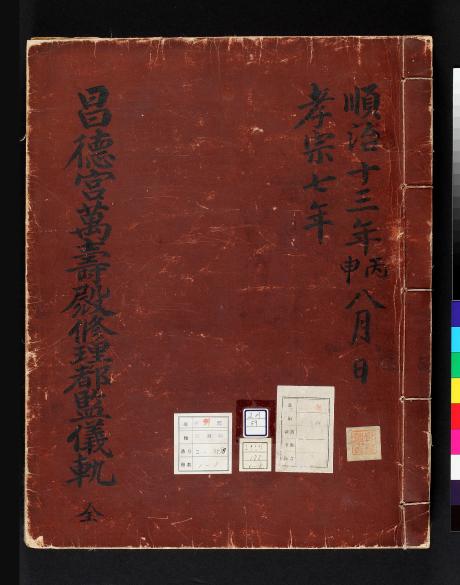 順治十三年丙申八月 日
孝宗七年
昌德宮萬壽殿修理都監儀軌 全